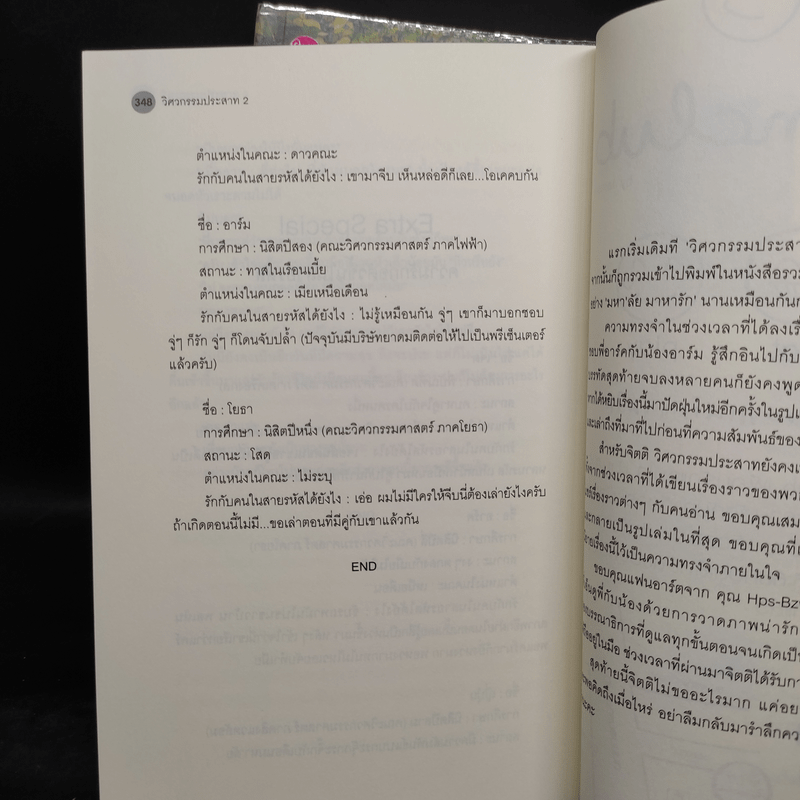 348 วิศวกรรมประสาท 2
ตำแหน่งในคณะ : ดาวคณะ
รักกับคนในสายรหัสได้ยังไง : เขามาจีบ เห็นหล่อดีก็เลย...โอเคคบกัน
ชื่อ : อาร์ม
การศึกษา : นิสิตปีสอง (คณะวิศวกรรมศาสตร์ ภาคไฟฟ้า)
สถานะ : ทาสในเรือนเบี้ย
ตำแหน่งในคณะ : เมียเหนือเดือน
รักกับคนในสายรหัสได้ยังไง : ไม่รู้เหมือนกัน จู่ๆ เขาก็มาบอกชอบ
จู่ๆ ก็รัก จู่ๆ ก็โดนจับปล้ำ (ปัจจุบันมีบริษัทยาดมติดต่อให้ไปเป็นพรีเซ็นเตอร์
แล้วครับ)
ชื่อ : โยธา
การศึกษา : นิสิตปีหนึ่ง (คณะวิศวกรรมศาสตร์ ภาคโยธา)
สถานะ : โสด
ตำแหน่งในคณะ : ไม่ระบุ
รักกับคนในสายรหัสได้ยังไง : เอ่อ ผมไม่มีใครให้จีบนี่ต้องเล่ายังไงครับ
ถ้าเกิดตอนนี้ไม่มี...ขอเล่าตอนที่มีคู่กับเขาแล้วกัน
END
แรกเริ่มเดิมที 'วิศวกรรมประสา
จากนั้นก็ถูกรวมเข้าไปพิมพ์ในหนังสือรวม
อย่าง 'มหา'ลัย มาหารัก' นานเหมือนกัน
ความทรงจำในช่วงเวลาที่ได้ลงเรื่
ชอบพี่อาร์คกับน้องอาร์ม รู้สึกอินไปกับ
บรรทัดสุดท้ายจบลงหลายคนก็ยังคงพูด
ได้หยิบเรื่องนี้มาปัดฝุ่นใหม่อีกครั้งในรูป
และเล่าถึงที่มาที่ไปก่อนที่ความสัมพันธ์ของ
สำหรับจิตติ วิศวกรรมประสาทยังคง
จากช่วงเวลาที่ได้เขียนเรื่องราวของพว
เรื่องราวต่างๆ กับคนอ่าน ขอบคุณเสม
และกลายเป็นรูปเล่มในที่สุด ขอบคุณที่
เรื่องนี้ไว้เป็นความทรงจำภายในใจ
ขอบคุณแฟนอาร์ตจาก คุณ Hps-Bz
ดูพี่กับน้องด้วยการวาดภาพน่ารัก
บรรณาธิการที่ดูแลทุกขั้นตอนจนเกิดเป็
อยู่ในมือ ช่วงเวลาที่ผ่านมาจิตติได้รับกา
สุดท้ายนี้จิตติไม่ขออะไรมาก แค่อย
คิดถึงเมื่อไหร่ อย่าลืมกลับมารำลึกคว